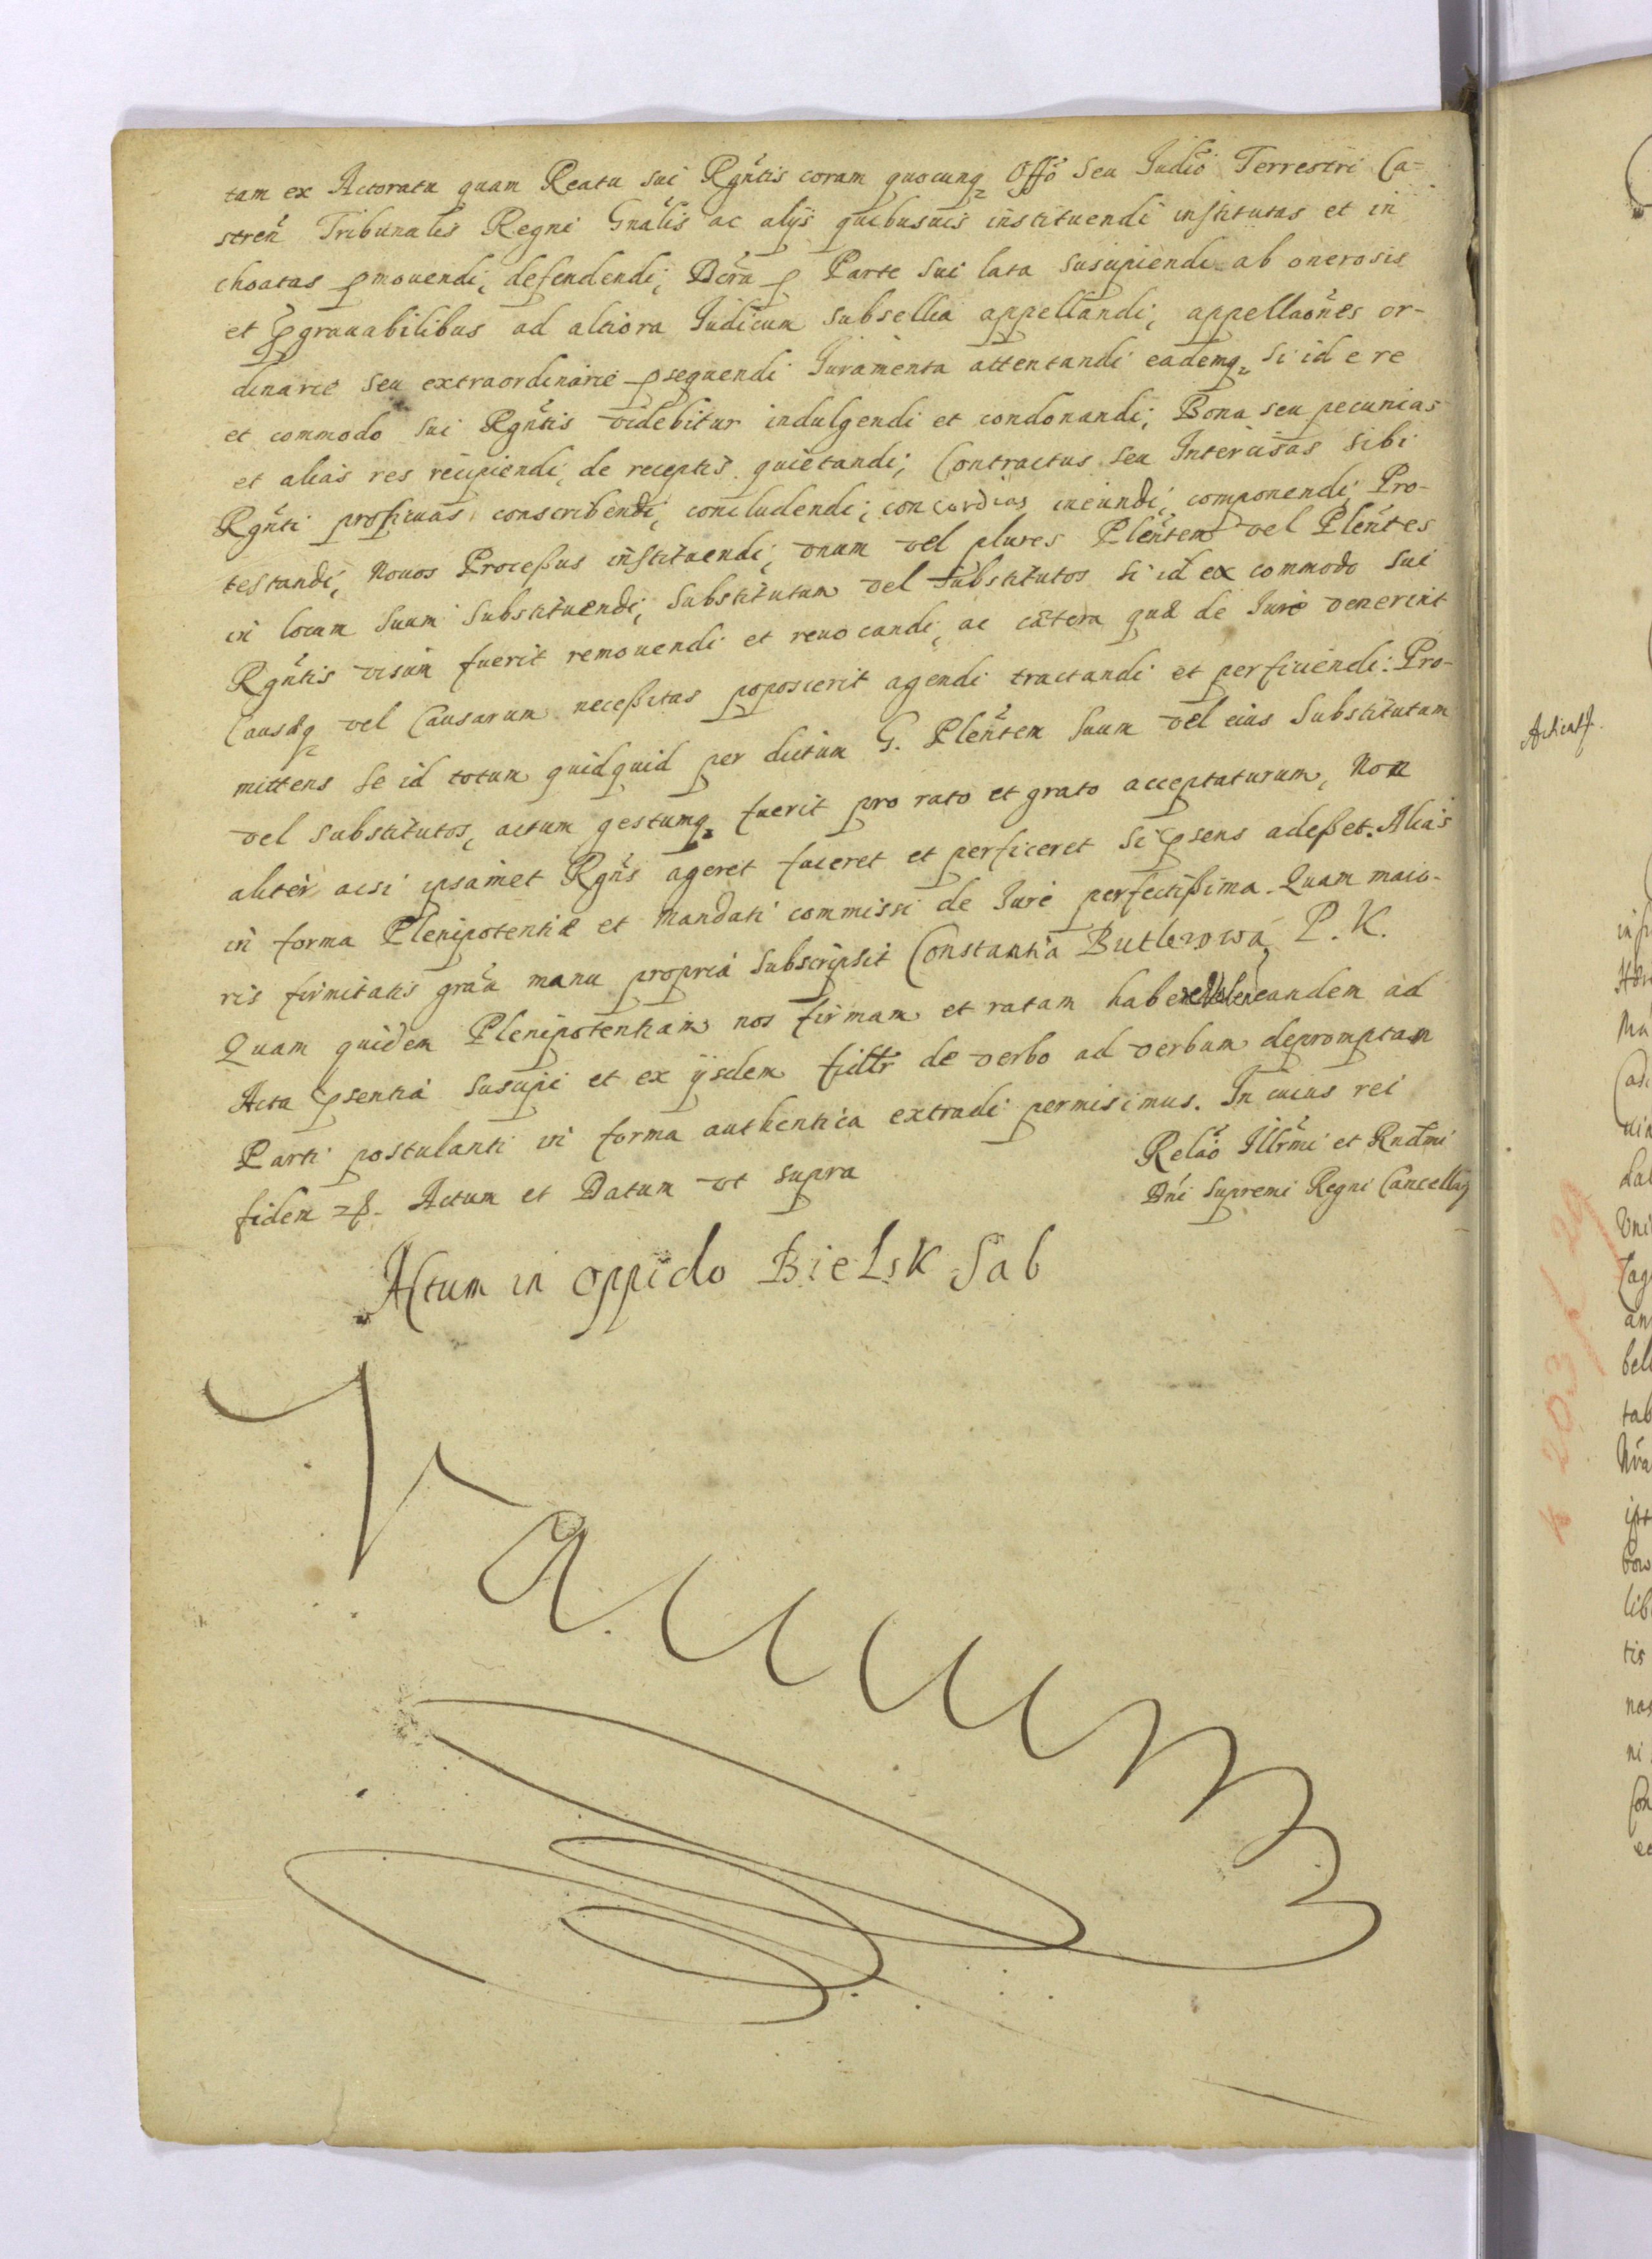 tam ex Actoratu quam Reatu sui Rgñtis coram quocunq Offõ seu Judiõ Terrestri Ca=
streñ Tribunalis Regni Gnãlis ac alÿs quibusuis instituendi institutas et in
choatas pmouendi, defendendi, Dcrã p Parte sui lata suscipiendi ab onerosis
et pgrauabilibus ad altiora Judicum subsellia appellandi, appellaõnes or-
dinarie seu extraordinarie psequendi Juramenta attentandi eademq si id e re
et commodo sui Rgñtis videbitur indulgendi et condonandi, Bona seu pecunias
et alias res recipiendi, de receptis quietandi, Contractus seu Intercisas sibi
Rgñti proficuas conscribendi, concludendi, concordias ineundi, componendi, Pro-
testandi, Nouos Proceßus instituendi, vnum vel plures Pleñtem vel Pleñtes
in locum suum substituendi, substitutum vel substitutos si id ex commodo sui
Rgñtis visum fuerit remouendi et reuocandi, ac cætera quæ de Jure venerint
Causæq vel Causarum neceßitas poposcerit agendi tractandi et perficiendi: Pro-
mittens se id totum quidquid per dictum G. Pleñtem suum vel eius substitutum
vel substitutos, actum gestumq fuerit pro rato et grato acceptaturum, Non
aliter acsi ipsamet Rgñs ageret faceret et perficeret si psens adeßet. Alias
in forma Plenipotentiæ et Mandati commissi de Jure perfectißima. Quam maio-
ris firmitatis grãa manu propria subscripsit Constantia Butlerowa P. K.
Quam quidem Plenipotentiam nos firmam et ratam habere eandem ad
Acta psentia suscipi et ex ÿsdem fidltr de verbo ad verbum depromptam
Parti postulanti in forma authentica extradi permisimus. In cuius rei
fidem Actum et Datum vt supra
Relaõ Illr̃mi et Rndm̃i
Dñi Supremi Regni Cancellarÿ
Actum in oppido Bielsk Sab
Vacuum
Acticat